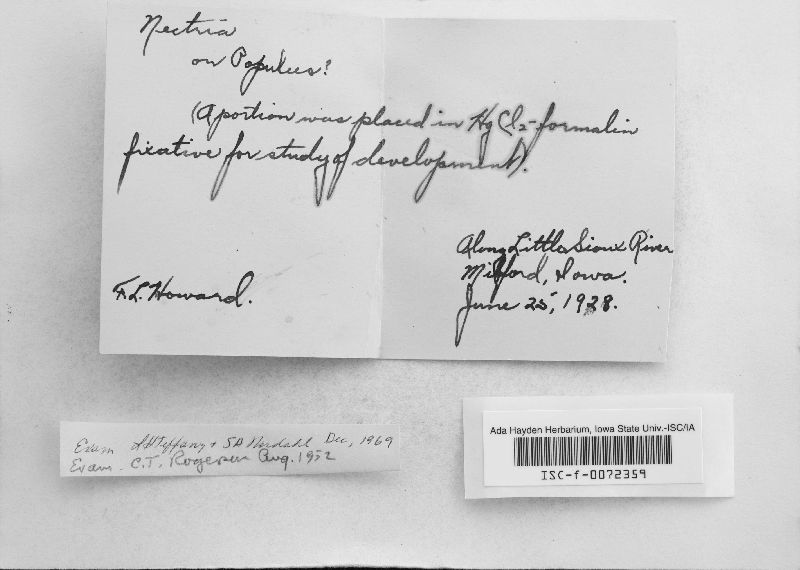 Nectria
on Populus?
(A portion was placed in HgCl2-formalin
fixative for study of development).
Along Little Sioux River
Milford, Iowa.
June 25, 1928.
F.L. Howard.
Exam LH Tiffany + SA Nordahl Dec, 1969
Exam. C.T. Rogerson Aug. 1952
Ada Hayden Herbarium, Iowa State Univ.-ISC/IA
ISC-f-0072359